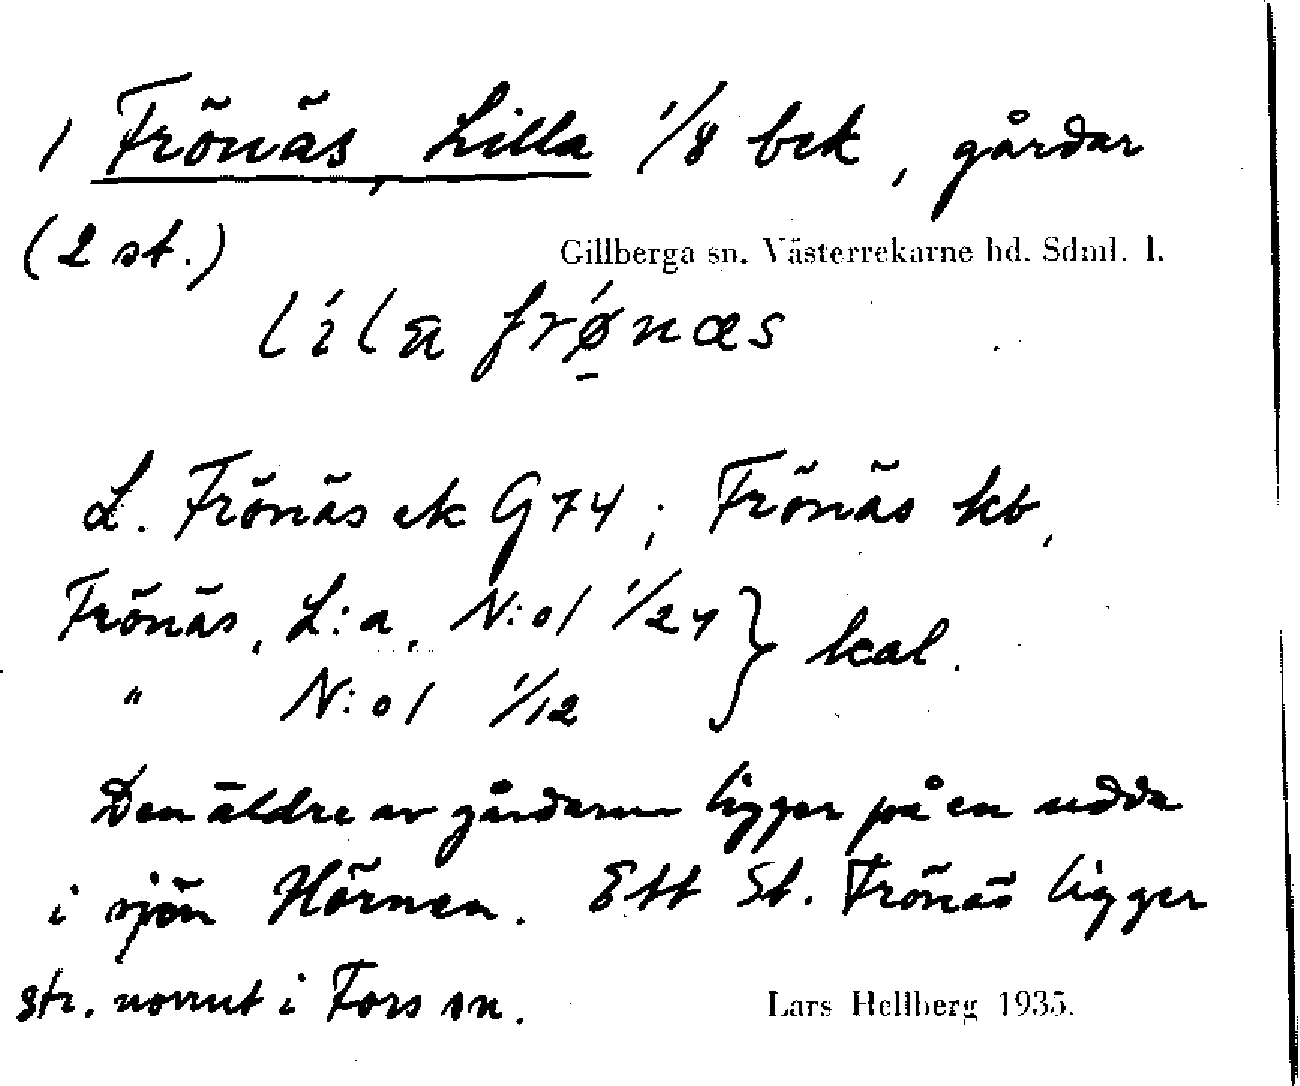 / Frönäs, Lilla 1/8 bek, gårdar
(2 st.)
Gillberga sn. Västerrekarne hd. Sdml. l.
lila frǿnæs
L. Frönäs ek G 74; Frönäs kb,
Frönäs, L:a, N:o 1 1/24 } kal.
" N:o 1 1/12
Den äldre av gårdarna ligger på en udde
i sjön Hörnen. Ett St. Frönäs ligger
str. norrut i Fors sn.
Lars Hellberg 1935.